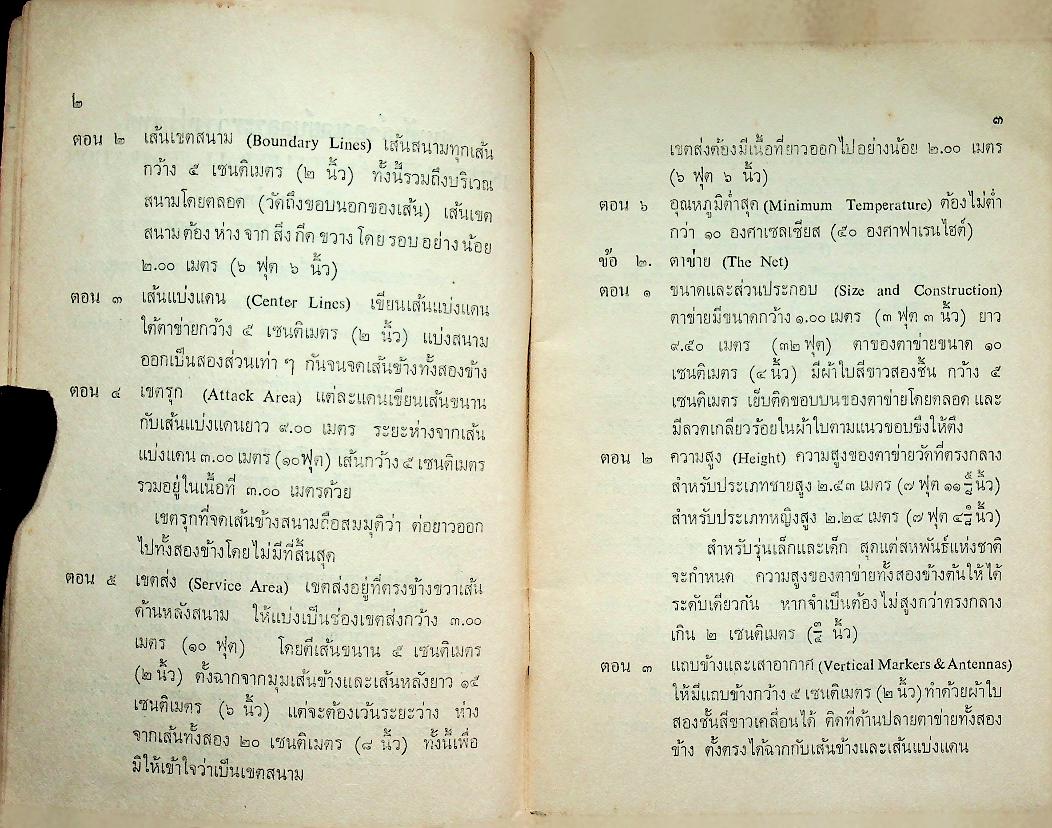 ๒
ตอน ๒ เส้นเขตสนาม (Boundary Lines) เส้นสนามทุกเส้น
กว้าง ๕ เซนติเมตร (๒ นิ้ว) ทั้งนี้รวมถึงบริเวณ
สนามโดยตลอด (วัดถึงขอบนอกของเส้น) เส้นเขต
สนามต้องห่างจากสิ่งกีดขวางโดยรอบอย่างน้อย
๒.๐๐ เมตร (๖ ฟุต ๖ นิ้ว)
ตอน ๓ เส้นแบ่งแดน (Center Lines) เขียนเส้นแบ่งแดน
ใต้ตาข่ายกว้าง ๕ เซนติเมตร (๒ นิ้ว) แบ่งสนาม
ออกเป็นสองส่วนเท่า ๆ กันจนจดเส้นข้างทั้งสองข้าง
ตอน ๔ เขตรุก (Attack Area) แต่ละแดนเขียนเส้นขนาน
กับเส้นแบ่งแดนยาว ๙.๐๐ เมตร ระยะห่างจากเส้น
แบ่งแดน ๓.๐๐ เมตร (๑๐ฟุต) เส้นกว้าง ๕ เซนติเมตร
รวมอยู่ในเนื้อที่ ๓.๐๐ เมตรด้วย
เขตรุกที่จดเส้นข้างสนามถือสมมุติว่า ต่อยาวออก
ไปทั้งสองข้างโดยไม่มีที่สิ้นสุด
ตอน ๕ เขตส่ง (Service Area) เขตส่งอยู่ที่ตรงข้างขวาเส้น
ด้านหลังสนาม ให้แบ่งเป็นช่องเขตส่งกว้าง ๓.๐๐
เมตร (๑๐ ฟุต) โดยตีเส้นขนาน ๕ เซนติเมตร
(๒ นิ้ว) ตั้งฉากจากมุมเส้นข้างและเส้นหลังยาว ๑๕
เซนติเมตร (๖ นิ้ว) แต่จะต้องเว้นระยะว่าง ห่าง
จากเส้นทั้งสอง ๒๐ เซนติเมตร (๘ นิ้ว) ทั้งนี้เพื่อ
มิให้เข้าใจว่าเป็นเขตสนาม
๓
เขตส่งต้องมีเนื้อที่ยาวออกไปอย่างน้อย ๒.๐๐ เมตร
(๖ ฟุต ๖ นิ้ว)
ตอน ๖ อุณหภูมิต่ำสุด (Minimum Temperature) ต้องไม่ต่ำ
กว่า ๑๐ องศาเซลเซียส (๕๐ องศาฟาเรนไฮต์)
ข้อ ๒. ตาข่าย (The Net)
ตอน ๑ ขนาดและส่วนประกอบ (Size and Construction)
ตาข่ายมีขนาดกว้าง ๑.๐๐ เมตร (๓ ฟุต ๓ นิ้ว) ยาว
๙.๕๐ เมตร (๓๒ ฟุต) ตาของตาข่ายขนาด ๑๐
เซนติเมตร (๔ นิ้ว) มีผ้าใบสีขาวสองชั้น กว้าง ๕
เซนติเมตร เย็บติดขอบบนของตาข่ายโดยตลอด และ
มีลวดเกลียวร้อยในผ้าใบตามแนวขอบขึงให้ตึง
ตอน ๒ ความสูง (Height) ความสูงของตาข่ายวัดที่ตรงกลาง
สำหรับประเภทชายสูง ๒.๔๓ เมตร (๗ ฟุต ๑๑ ๕/๘ นิ้ว)
สำหรับประเภทหญิงสูง ๒.๒๔ เมตร (๗ ฟุต ๔ ๑/๘ นิ้ว)
สำหรับรุ่นเล็กและเด็ก สุดแต่สหพันธ์แห่งชาติ
จะกำหนด ความสูงของตาข่ายทั้งสองข้างต้นให้ได้
ระดับเดียวกัน หากจำเป็นต้องไม่สูงกว่าตรงกลาง
เกิน ๒ เซนติเมตร (๓/๔ นิ้ว)
ตอน ๓ แถบข้างและเสาอากาศ (Vertical Markers & Antennas)
ให้มีแถบข้างกว้าง ๕ เซนติเมตร (๒ นิ้ว) ทำด้วยผ้าใบ
สองชั้นสีขาวเคลื่อนได้ ติดที่ด้านปลายตาข่ายทั้งสอง
ข้าง ตั้งตรงได้ฉากกับเส้นข้างและเส้นแบ่งแดน